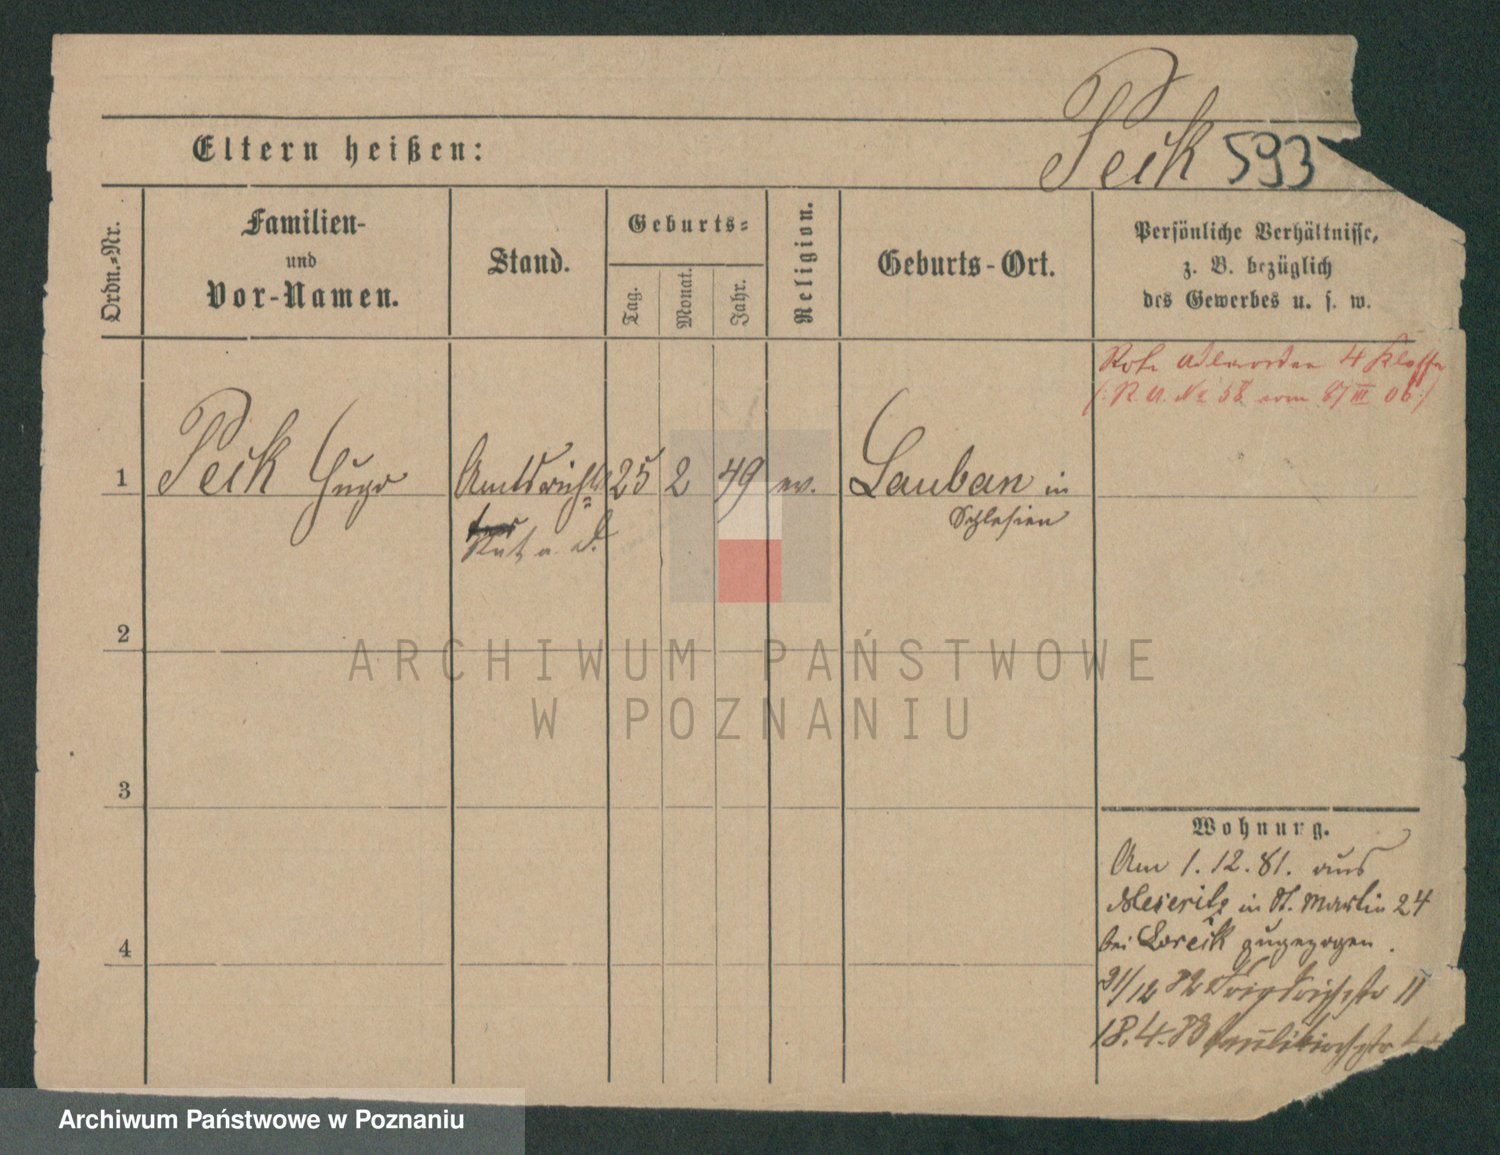 Peik 593
Eltern heißen:
Ordn.-Nr.
Familien-
und
Vor-Namen.
Stand.
Geburts-
Tag.
Monat.
Jahr.
Religion.
Geburts-Ort.
Persönliche Verhältnisse,
z. B. bezüglich
des Gewerbes u. s. w.
Rote Adlerorden 4 Klasse
(: R. A. No 58 vom 6/III 06 :)
1 Peik Hugo Amtsrich= 25 2 49 ev. Lauban in
Schlesien
Rat a. D.
2
ARCHIWUM PAŃSTWOWE
W POZNANIU
3
Wohnung.
Am 1.12.81. aus
Meseritz in St. Martin 24
bei Loreik zugezogen.
4
31/12 82 Friedrichstr 11
18.4.83 Paulikirchstr
Archiwum Państwowe w Poznaniu